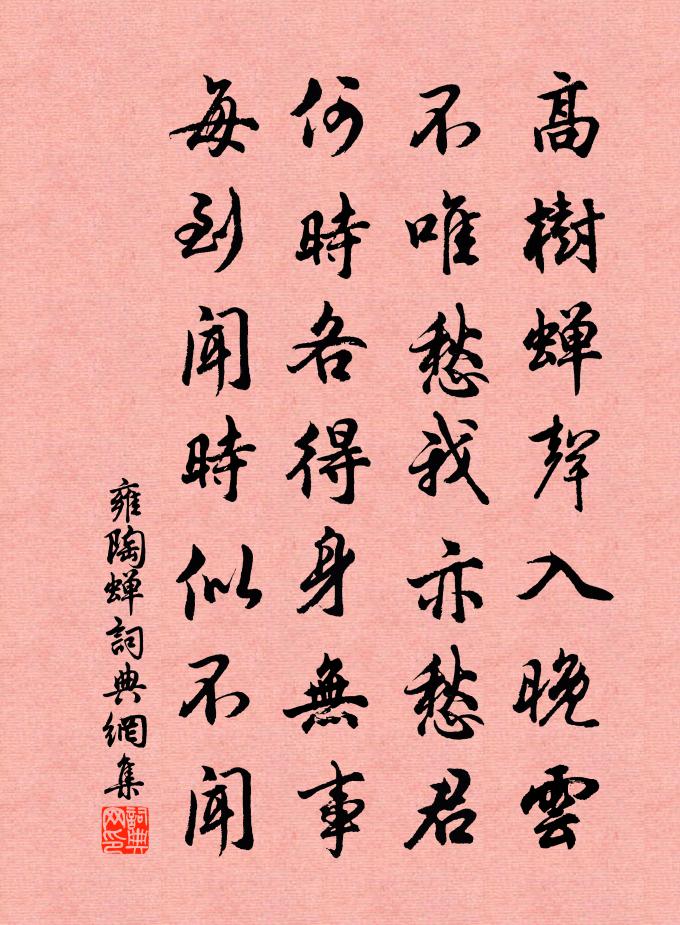 高樹蝉聲入晚雲
不唯愁我亦愁君
何時各得身無事
每到聞時似不聞
雍陶蝉詞典網集
詞典网印